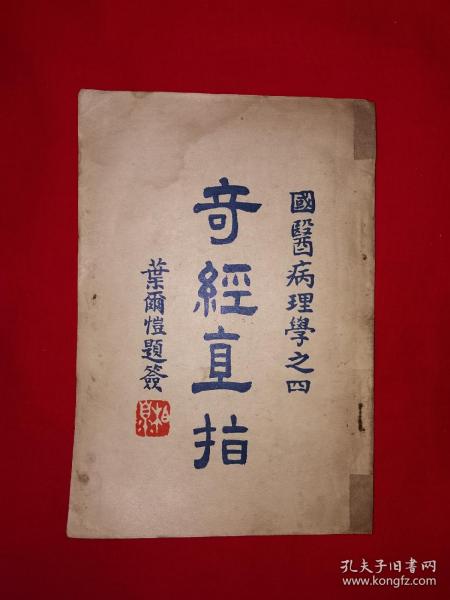 國醫病理學之四
奇經直指
葉爾愷題簽
柏皋
孔夫子旧书网
www.kongfz.com